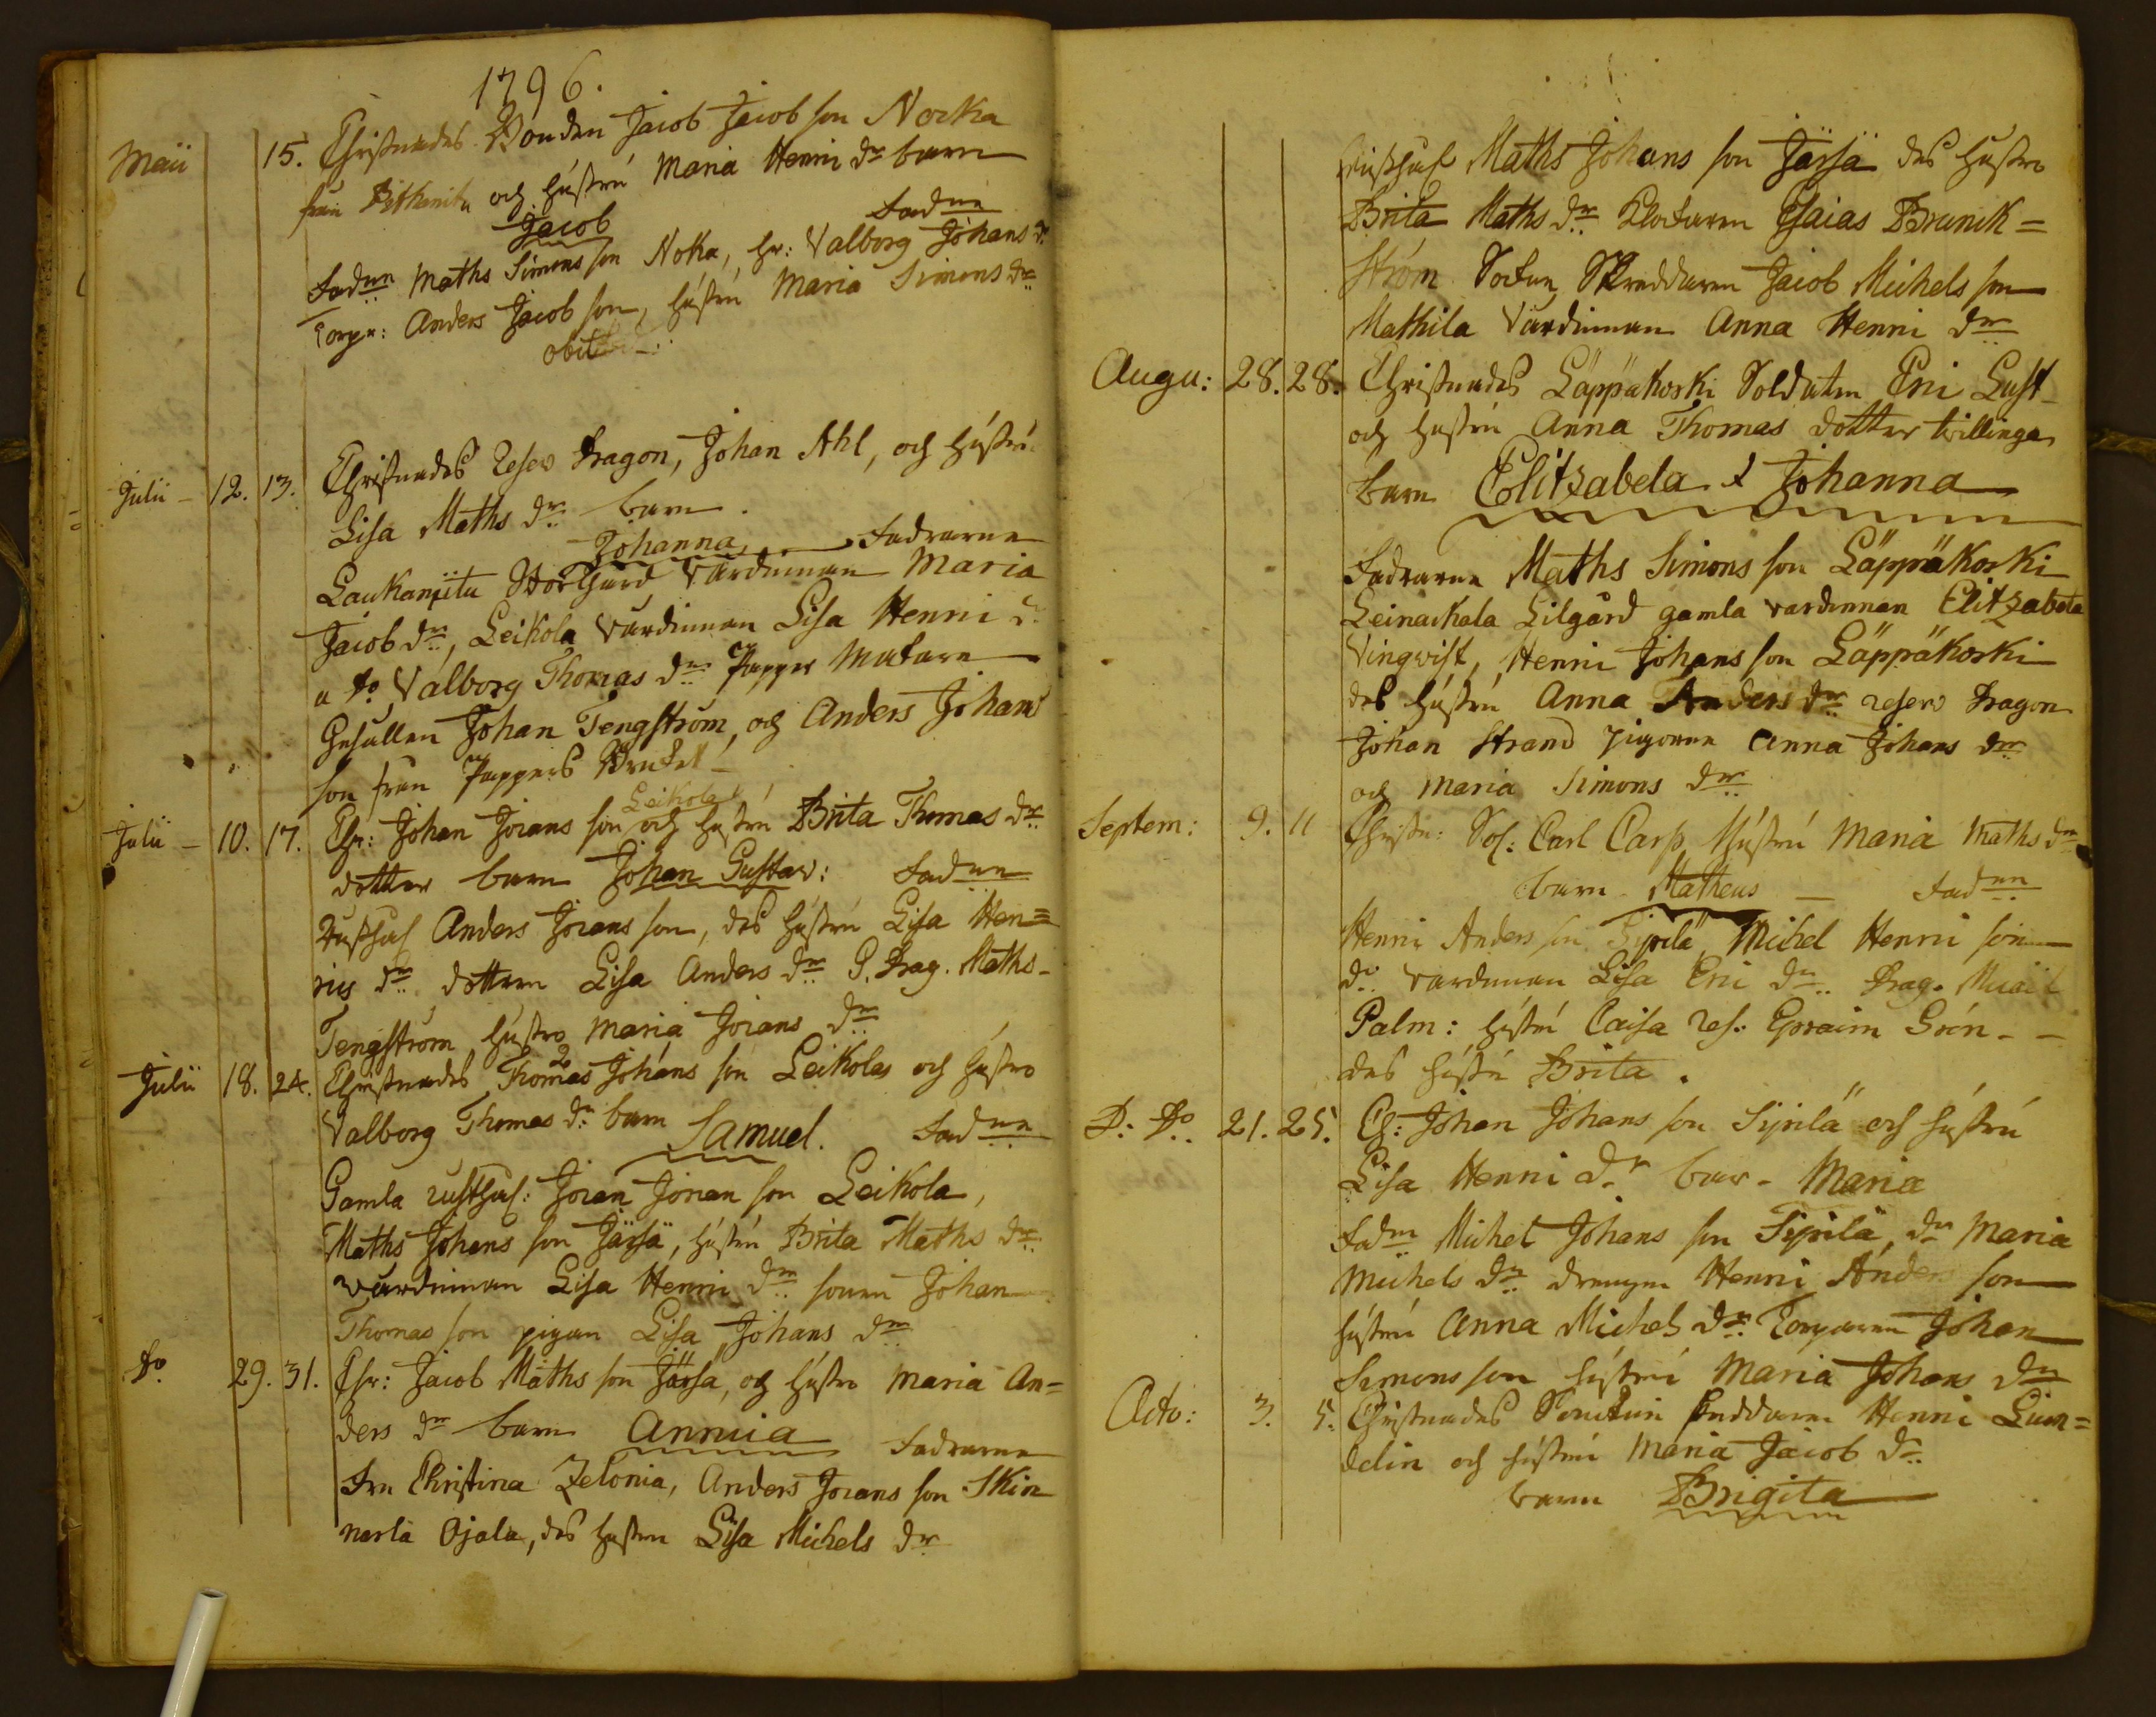 1796.
Maii 15. Christnades Bonden Jacob Jacob son Nocka
från Pitkenitu och hustru Maria Henri dr barn
Jacob Fadrne
Fadrne Maths Simons son Noka, hr: Valborg Johans dr
Torpr: Anders Jacob son, hustru Maria Simons dr
obiit
Julii - 12. 13. Christnades Reserv Dragon, Johan Ahl, och hustru
Lisa Maths dr barn.
Johanna Fadrarne
Laukanjitu Storgård Värdinnan Maria
Jacob dr, Leikola värdinnan Lisa Henri dr
a do Valborg Thomas dr Papper Makare
Gesällen Johan Tengström, och Anders Johans
son från Pappers Bruket
Leikola
Julii - 10. 17. Chr: Johan Jörans son och hustru Brita Thomas dr
dotter barn Johan Gustav: Fadrne
Rusthål Anders Jörans son, des hustru Lisa Hen=
rics dr dottern Lisa Anders dr P. Drag. Maths
Tengström hustro Maria Jörans dr
Julii 18. 24. Christnades Thomas Johans son Leikolas och hustro
Valborg Thomas dr barn Samuel. Fadrne
Gamla rusthål: Jöran Jöran son Leikola,
Maths Johans son Järsä, hustru Brita Maths dr
värdinnan Lisa Henri dr sonen Johan
Thomas son pigan Lisa Johans dr
Do 29. 31. Chr: Jacob Maths son Järsä, och hustro Maria An=
ders dr barn Annia Fadrarne
Fru Christina Zelonia, Anders Jörans son Skin
narla Ojala, des hustru Lisa Michels dr
Rusthål Maths Johans son Järsä des hustro
Brita Maths dr Klockaren Esaias Brunik=
ström Socken Skreddaren Jacob Michels son
Mathila Värdinnan Anna Henri dr
Augu: 28. 28. Christnades Läppäkoski Soldaten Eric Lust
och hustru Anna Thomas dotter tvillinge
barn Elitzabeta & Johanna
Fadrarne Maths Simons son Läppäkoski
Leinackala Lilgård gamla värdinnan Elitzabeta
Vingvist, Henri Johans son Läppäkoski
des hustru Anna Anders dr reserv Dragon
Johan Strand pigorne Anna Johans dr
och Maria Simons dr
Septem: 9. 11 Christn: Sol: Carl Carp hustru Maria Maths dr
barn Matheus Fadrne
Henri Anders son Sipilä, Michel Henri son
do värdinnan Lisa Eric dr Drag. Micail
Palm: hustru Caisa res: Epraim Grön -
des hustru Brita.
D: Do 21. 25. Ch: Johan Johans son Sipilä och hustru
Lisa Henri dr barn - Maria
Fadrne Michel Johans son Sipilä, dr Maria
Michels dr drengen Henri Anders son
hustru Anna Michels dr Torparen Johan
Simons son hustru Maria Johans dr
Octo: 3. 5. Christnades Skreddaren Henri Lun=
delin och hustru Maria Jacob dr
barn Brigita